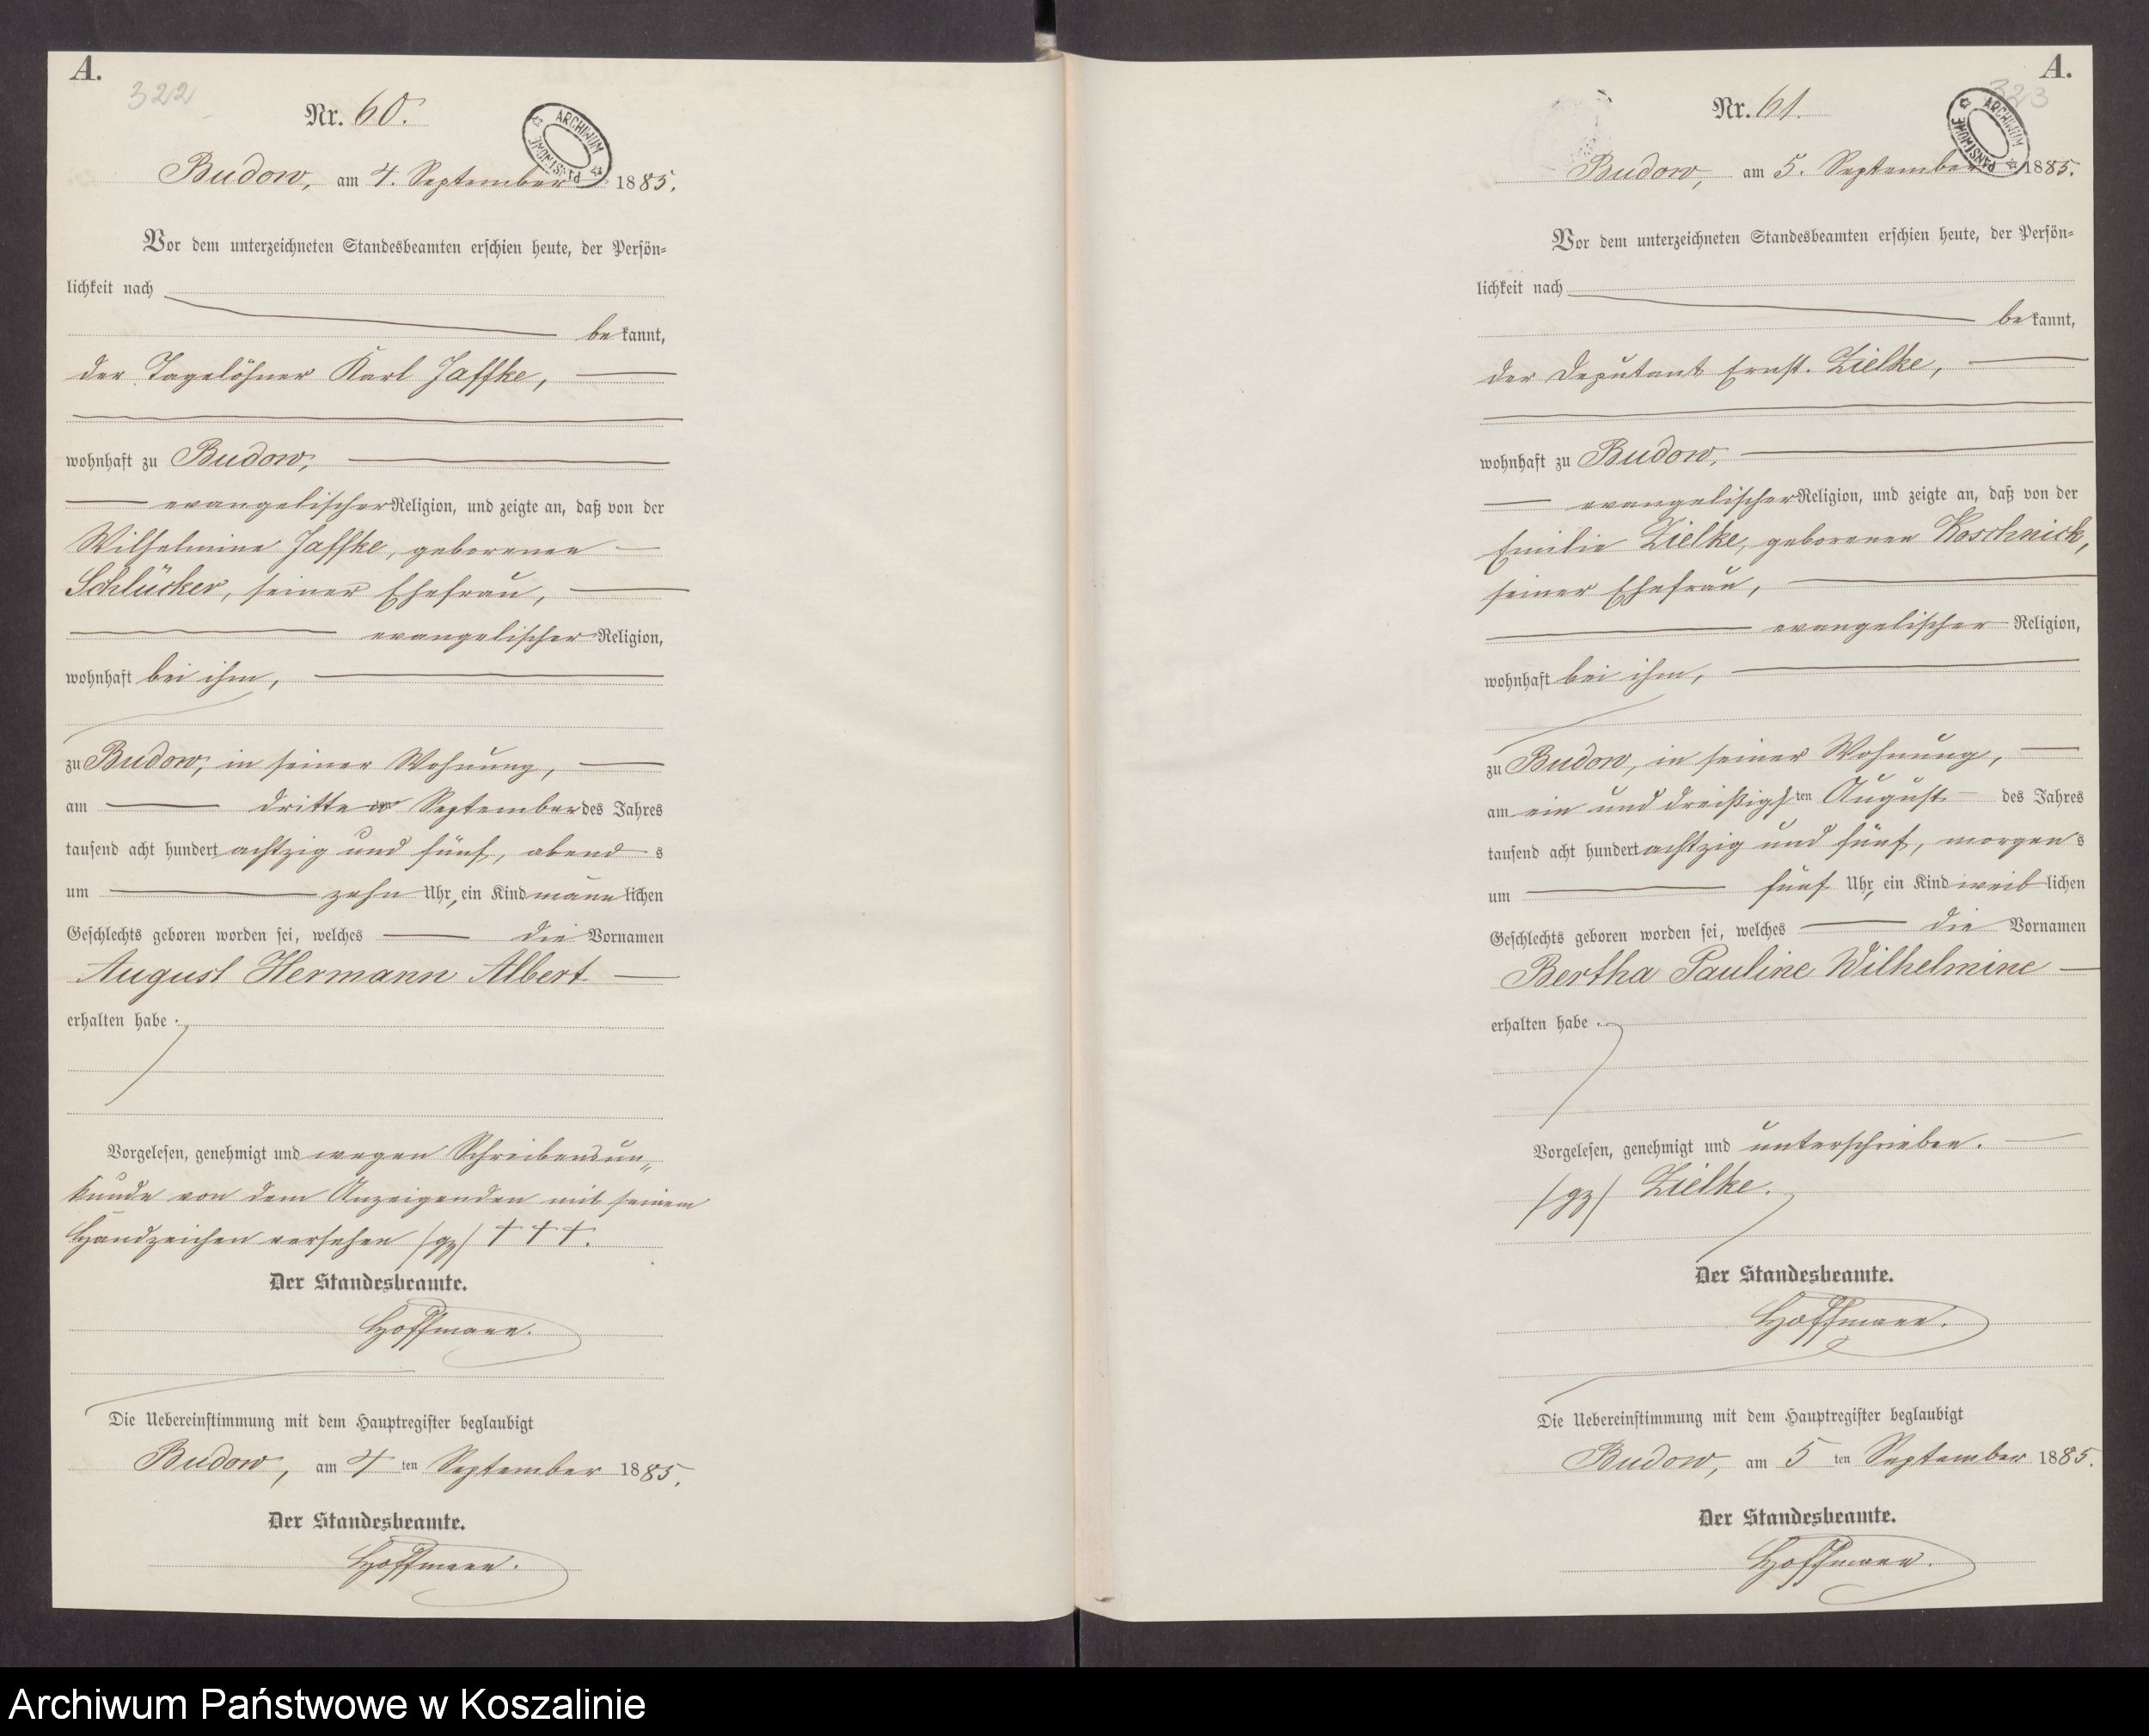 A.
322
Nr. 60.
ARCHIWUM PAŃSTWOWE
Budow, am 4. September 1885.
Vor dem unterzeichneten Standesbeamten erschien heute, der Persön-
lichkeit nach
be kannt,
der Tagelöhner Karl Jaffke,
wohnhaft zu Budow,
evangelischer Religion, und zeigte an, daß von der
Wilhelmine Jaffke, geborenen
Schlücker, seiner Ehefrau,
evangelischer Religion,
wohnhaft bei ihm,
zu Budow, in seiner Wohnung,
am dritten September des Jahres
tausend acht hundert achtzig und fünf, abend s
um zehn Uhr, ein Kind männ lichen
Geschlechts geboren worden sei, welches die Vornamen
August Hermann Albert
erhalten habe.
Vorgelesen, genehmigt und wegen Schreibensun„
kunde von dem Anzeigenden mit seinem
Handzeichen versehen /gz/ +++.
Der Standesbeamte.
Hoffmann.
Die Uebereinstimmung mit dem Hauptregister beglaubigt
Budow, am 4 ten September 1885.
Der Standesbeamte.
Hoffmann.
A.
323
Nr. 61.
ARCHIWUM PAŃSTWOWE
Budow, am 5. September 1885.
Vor dem unterzeichneten Standesbeamten erschien heute, der Persön-
lichkeit nach
be kannt,
der Deputant Ernst Zielke,
wohnhaft zu Budow,
evangelischer Religion, und zeigte an, daß von der
Emilie Zielke, geborenen Koschnick,
seiner Ehefrau,
evangelischer Religion,
wohnhaft bei ihm,
zu Budow, in seiner Wohnung,
am ein und dreißigsten August des Jahres
tausend acht hundert achtzig und fünf, morgen s
um fünf Uhr, ein Kind weib lichen
Geschlechts geboren worden sei, welches die Vornamen
Bertha Pauline Wilhelmine
erhalten habe.
Vorgelesen, genehmigt und unterschrieben.
/gz/ Zielke.
Der Standesbeamte.
Hoffmann.
Die Uebereinstimmung mit dem Hauptregister beglaubigt
Budow, am 5 ten September 1885.
Der Standesbeamte.
Hoffmann.
Archiwum Państwowe w Koszalinie